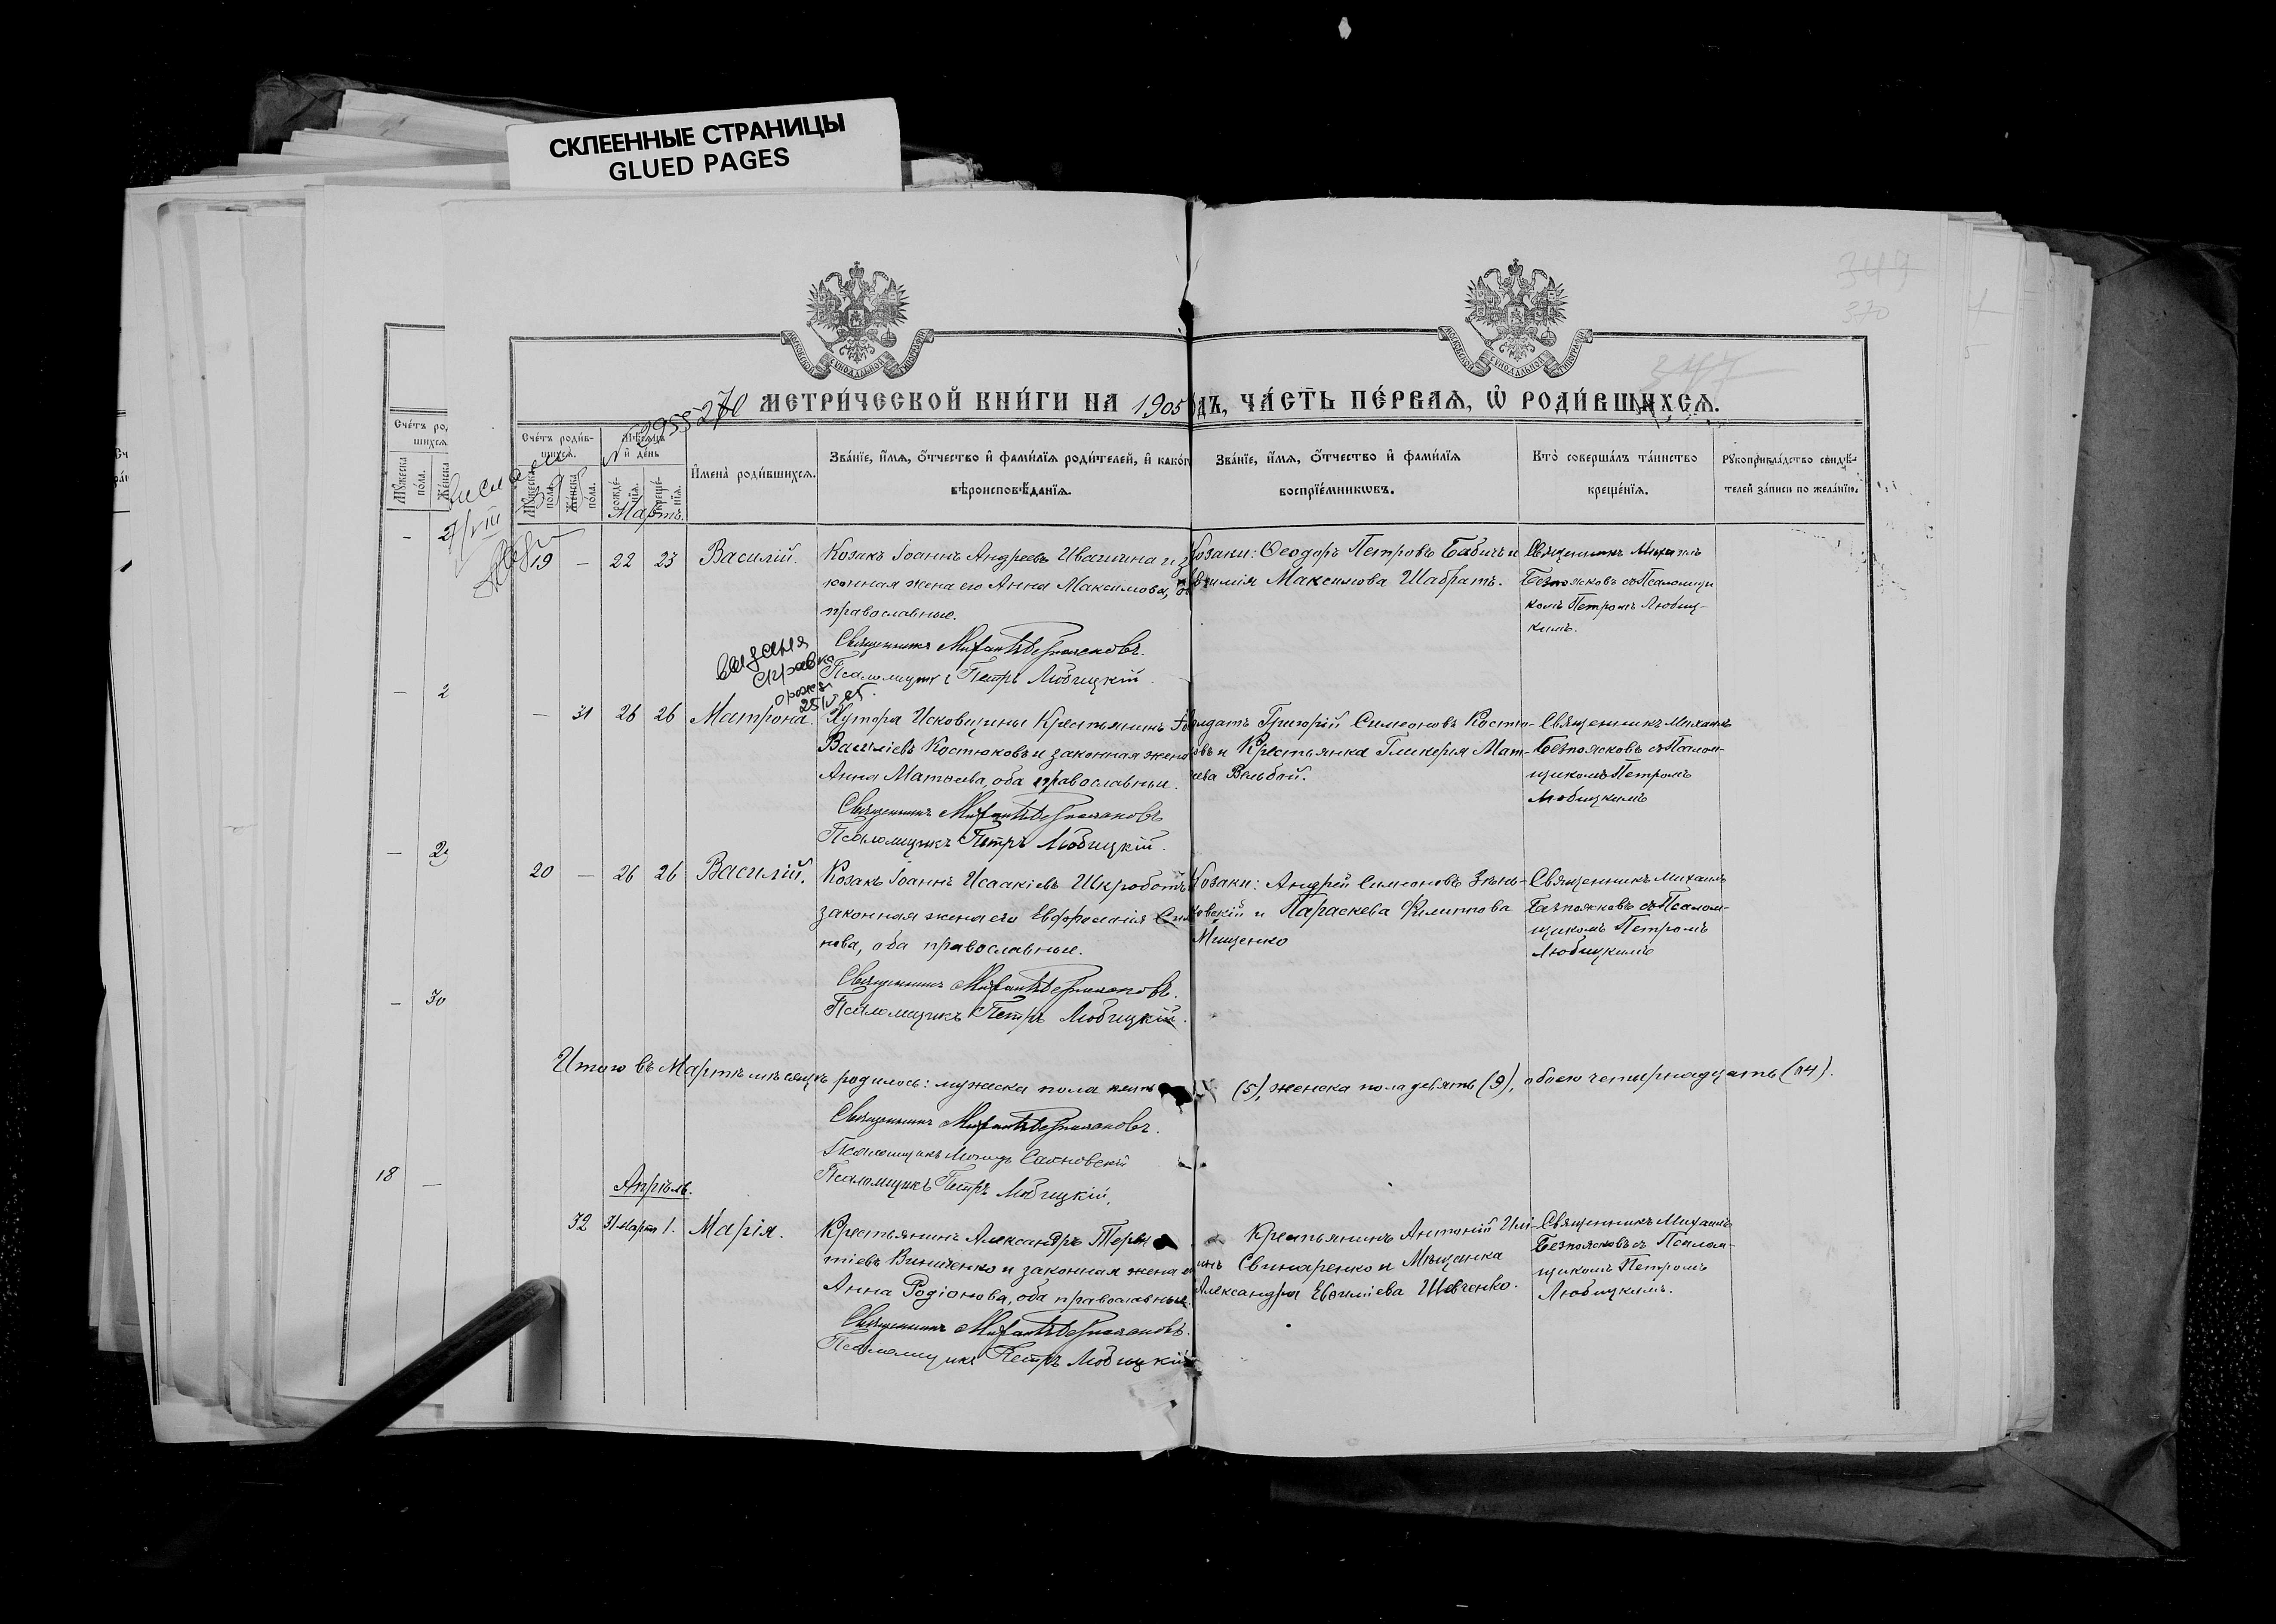 СКЛЕЕННЫЕ СТРАНИЦЫ
GLUED PAGES
349
370
347
МЕТРИ́ЧЕСКОЙ КНИ́ГИ НА 1905
ДЪ, ЧА́СТЬ ПЕ́РВАЯ, Ѿ РОДИ́ВШИХСЯ.
Сче́тъ роди́в-
шихся.
Му́жеска пола.
Же́нска пола.
Мѣ́сяцъ и де́нь
рожде́нія.
креще́нія.
И́мена̀ роди́вшихся.
Зва́нїе, и́мя, о́тчество и фами́лїя роди́телей, и како́г
вѣроисповѣ́данїя.
Зва́нїе, и́мя, о́тчество и фами́лїя
воспрїе́мниковъ.
Кто̀ соверша́лъ та́инство
креще́нїя.
Рꙋкоприкла́дство свидѣ́-
телей за́писи по жела́нїю.
Мартъ.
19 — 22 23 Василій.
Козакъ Іоаннъ Андреевъ Ивашина и з
конная жена его Анна Максимова, о
православные.
Священникъ Михаилъ Безпоясковъ.
Псаломщикъ Петръ Любицкій.
Козаки: Ѳеодоръ Петровъ Бабичъ и
Максимова Шабратъ.
Священникъ Михаилъ
Безпоясковъ съ Псаломщи
комъ Петромъ Любиц-
кимъ.
справка
— 31 26 26 Матрона.
Хутора Исковщины Крестьянинъ
Василіевъ Костюковъ и законная жена
Анна Матѳеева, оба православные.
Священникъ Михаилъ Безпоясковъ
Псаломщикъ Петръ Любицкій.
Солдатъ Григорій Симеоновъ Костю-
овъ и Крестьянка Гликерія Мат-
ѳеева
Священникъ Михаилъ
Безпоясковъ съ Псалом-
щикомъ Петромъ
Любицкимъ
20 — 26 26 Василій.
Козакъ Іоаннъ Исаакіевъ Шкроботъ
законная жена его Евфросинія Си
нова, оба православные.
Священникъ Михаилъ Безпоясковъ.
Псаломщикъ Петръ Любицкій.
Козаки: Андрей Симеоновъ Зѣнь-
ковскій и Параскева Филиппова
Мищенко
Священникъ Михаилъ
Безпоясковъ съ Псалом-
щикомъ Петромъ
Любицкимъ
Итого въ Мартѣ мѣсяцѣ родилось: мужеска пола пять (5), женска пола девять (9), обоего четырнадцать (14).
Священникъ Михаилъ Безпоясковъ.
Псаломщикъ
Псаломщикъ Петръ Любицкій.
Апрѣль.
32 31 Марта 1. Марія.
Крестьянинъ Александръ Терен
тіевъ Виниченко и законная жена е
Анна Родіонова, оба православные.
Священникъ Михаилъ Безпоясковъ.
Псаломщикъ Петръ Любицкій
Крестьянинъ Антоній Илі-
инъ Свинаренко и Мѣщанка
Александра Евѳиміева Шевченко.
Священникъ Михаилъ
Безпоясковъ съ Псалом-
щикомъ Петромъ
Любицкимъ.
Сче́тъ ро
шихся
18